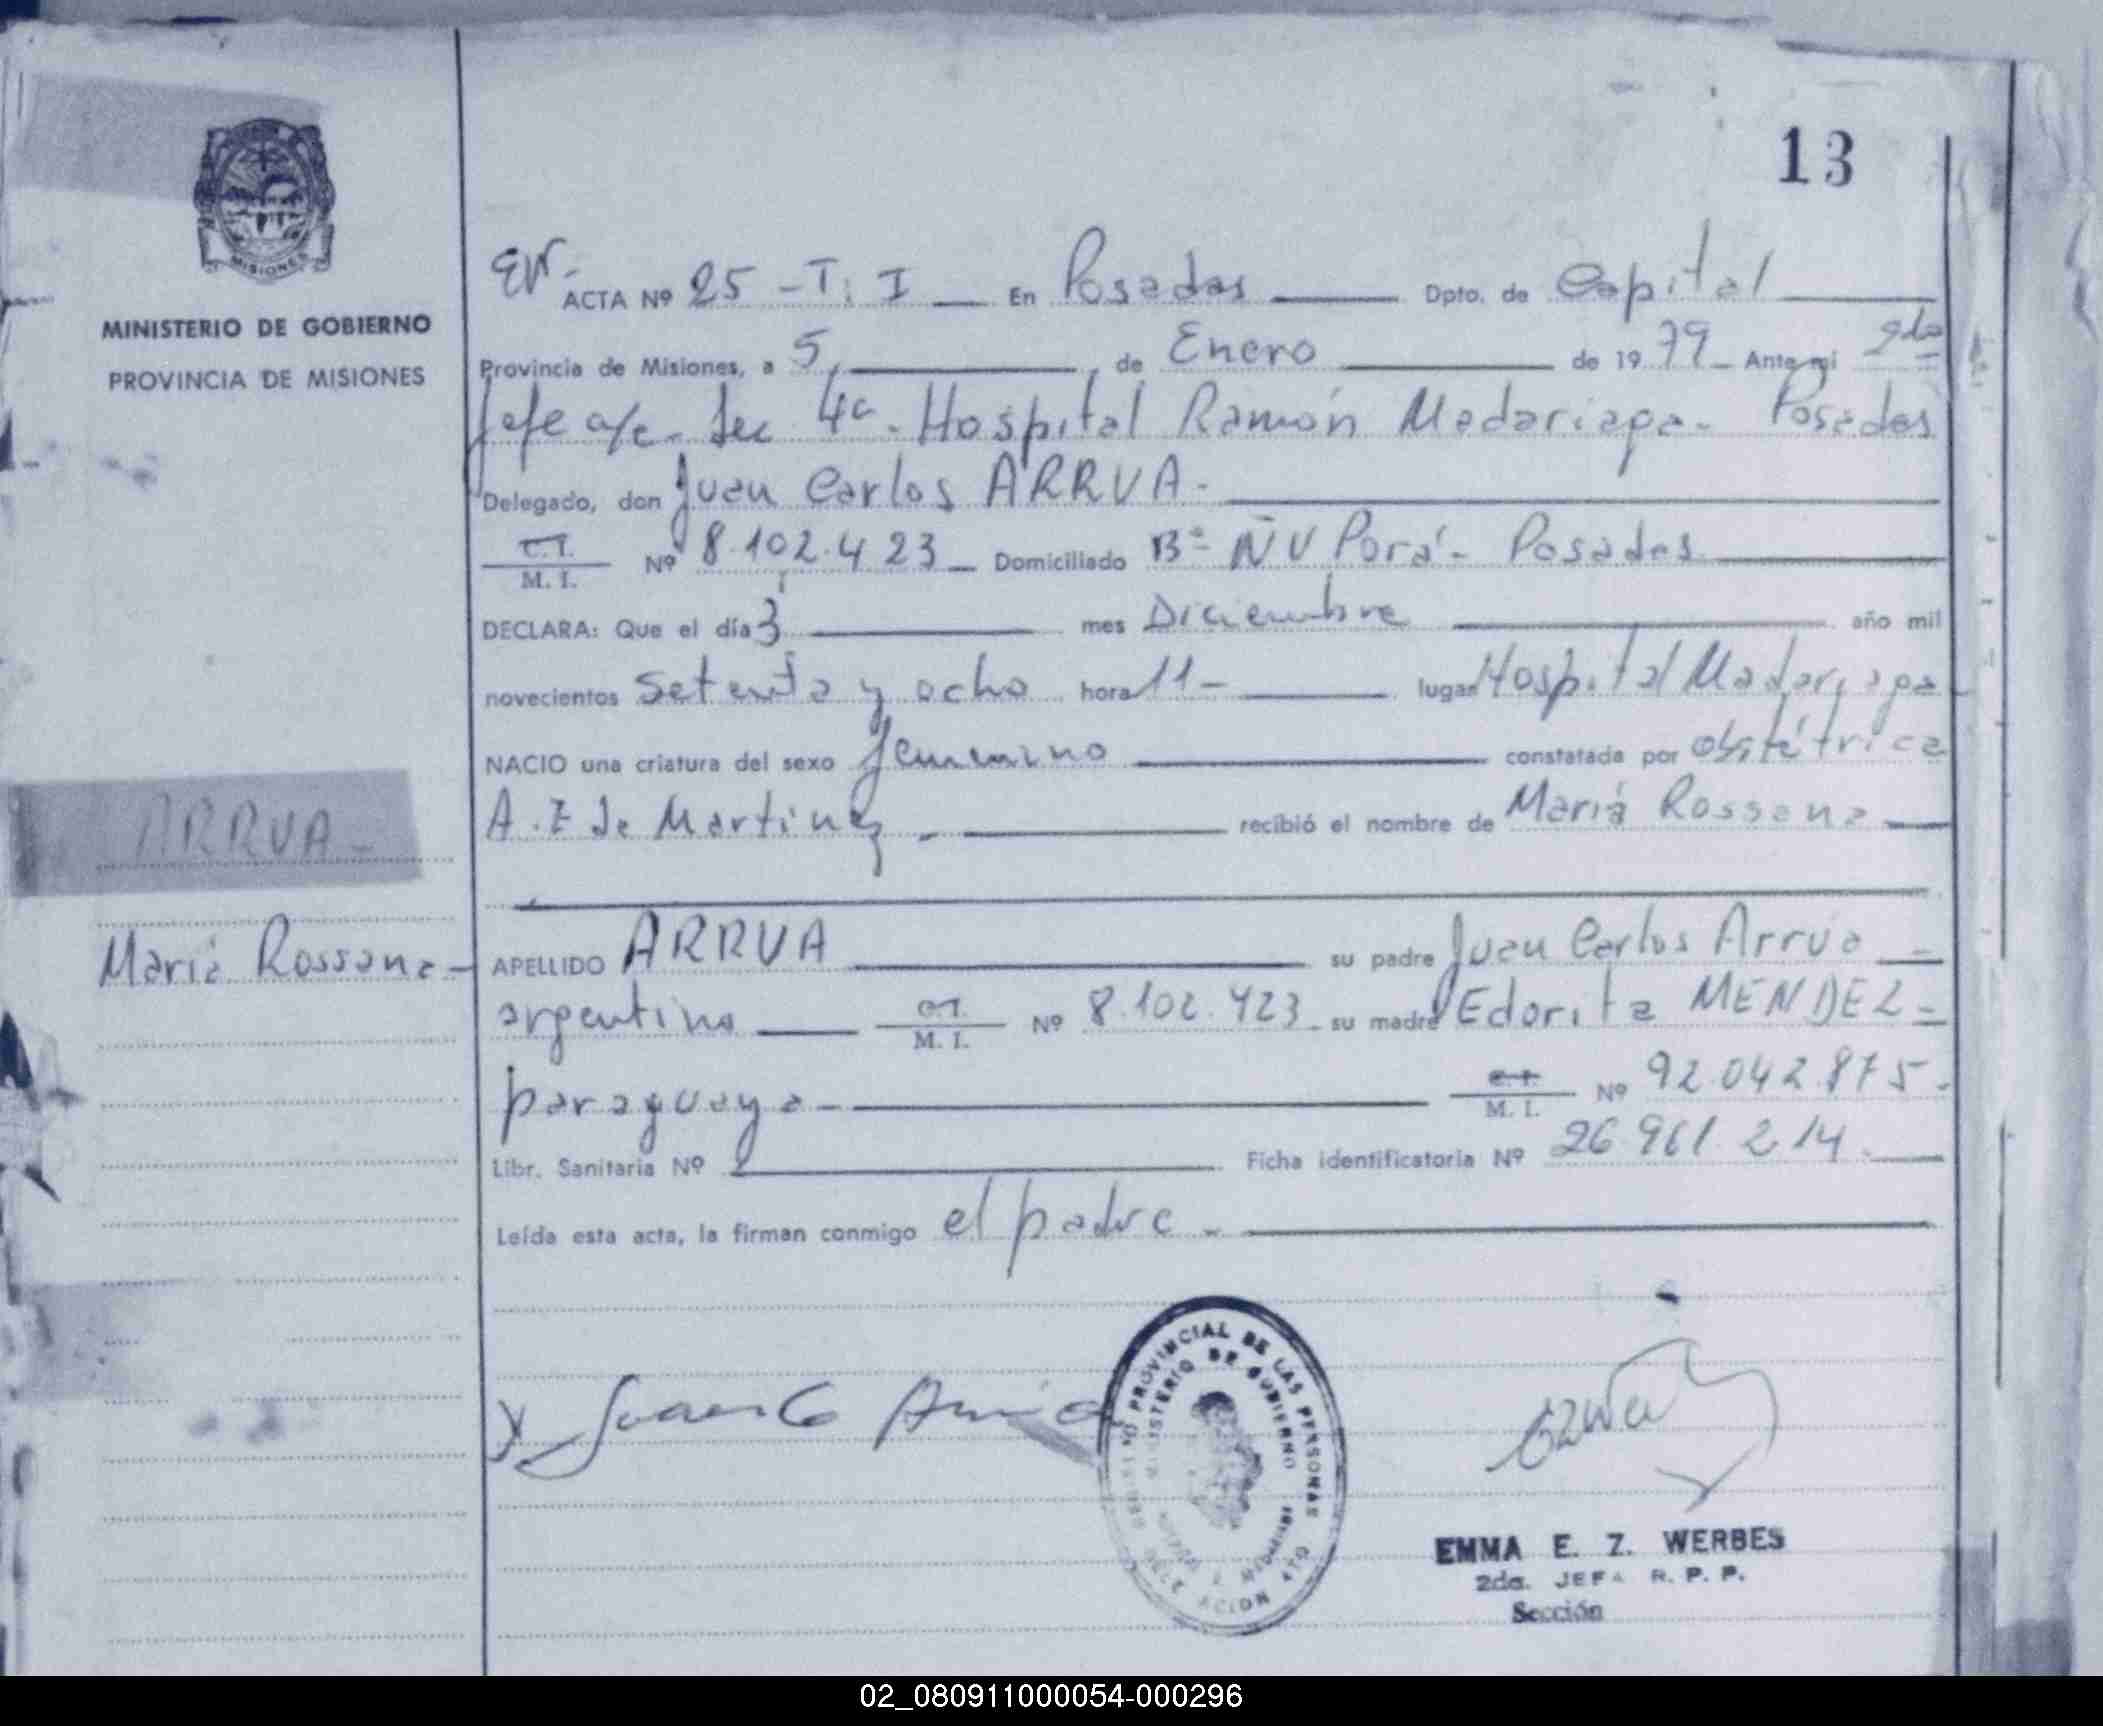 13
MISIONES
MINISTERIO DE GOBIERNO
PROVINCIA DE MISIONES
ARRUA -
María Rossana -
ACTA Nº 25 - T. I — En Posadas Dpto. de Capital
Provincia de Misiones, a 5, de Enero de 1979 - Ante mi 2da
Jefe a/c - Sec 4a - Hospital Ramón Madariaga - Posadas
Delegado, don Juan Carlos ARRUA -
C.I.
M. I. Nº 8.102.423 - Domiciliado Bº - ÑU Porá - Posadas
DECLARA: Que el día 3 mes Diciembre año mil
novecientos setenta y ocho hora 11 - lugar Hospital Madariaga
NACIO una criatura del sexo femenino constatada por obstétrica
A. Z de Martinez - recibió el nombre de María Rossana
APELLIDO ARRUA su padre Juan Carlos Arrúa -
argentino C.I.
M. I. Nº 8.102.423 - su madre Edorita MENDEZ -
paraguaya - C.I.
M. I. Nº 92.042.875 -
Libr. Sanitaria Nº Ficha identificatoria Nº 26.961.214 -
Leída esta acta, la firman conmigo el padre -
PROVINCIAL DE LAS PERSONAS
MINISTERIO DE GOBIERNO
EMMA E. Z. WERBES
2da. JEFA R. P. P.
Sección
02_080911000054-000296